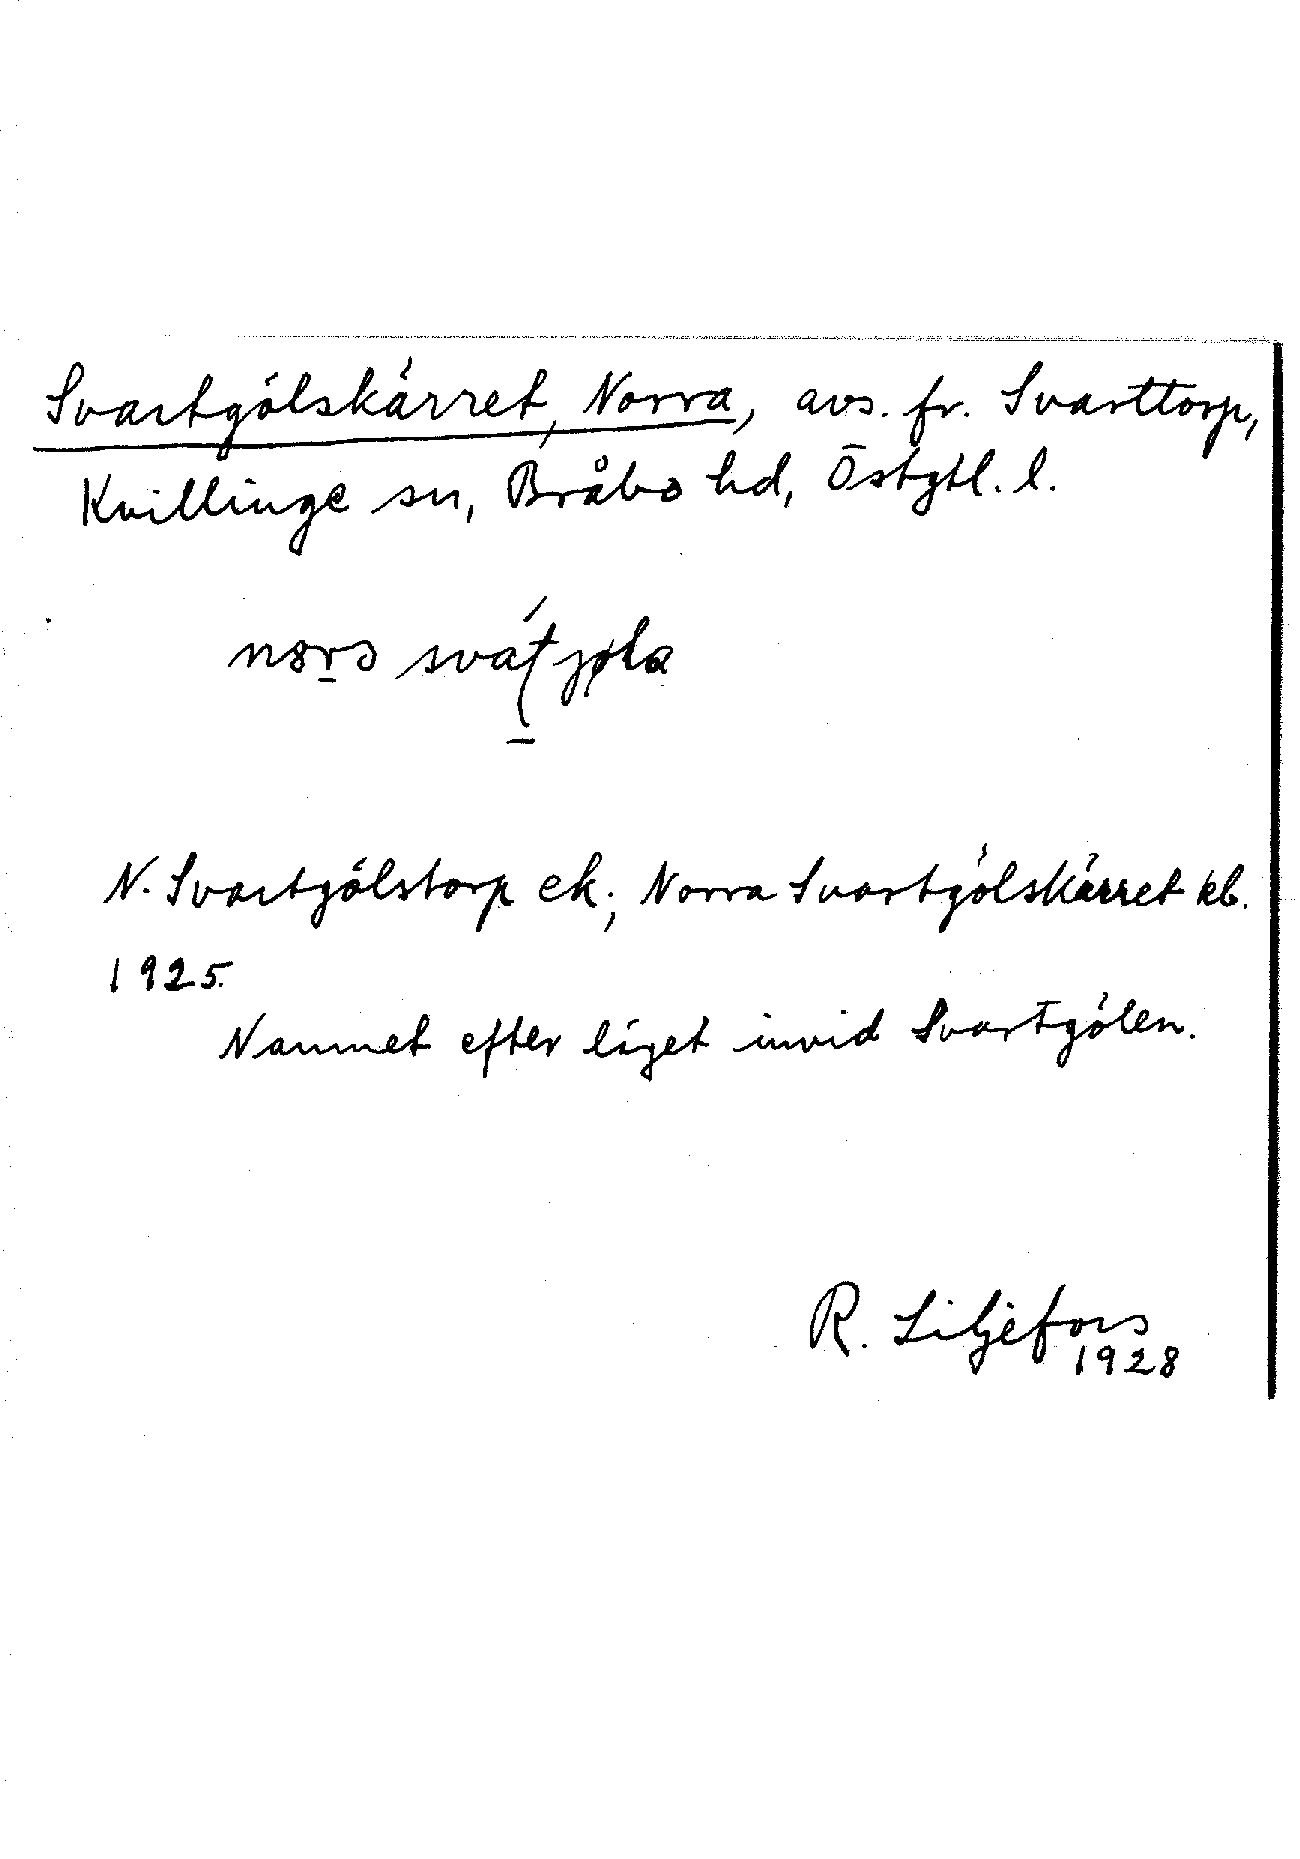 Svartgölskärret, Norra, avs. fr. Svarttorp,
Kvillinge sn, Bråbo hd, Östgtl. l.
N. Svartgölstorp ek; Norra Svartgölskärret kb.
1925.
Namnet efter läget invid Svartgölen.
R. Liljefors
1928